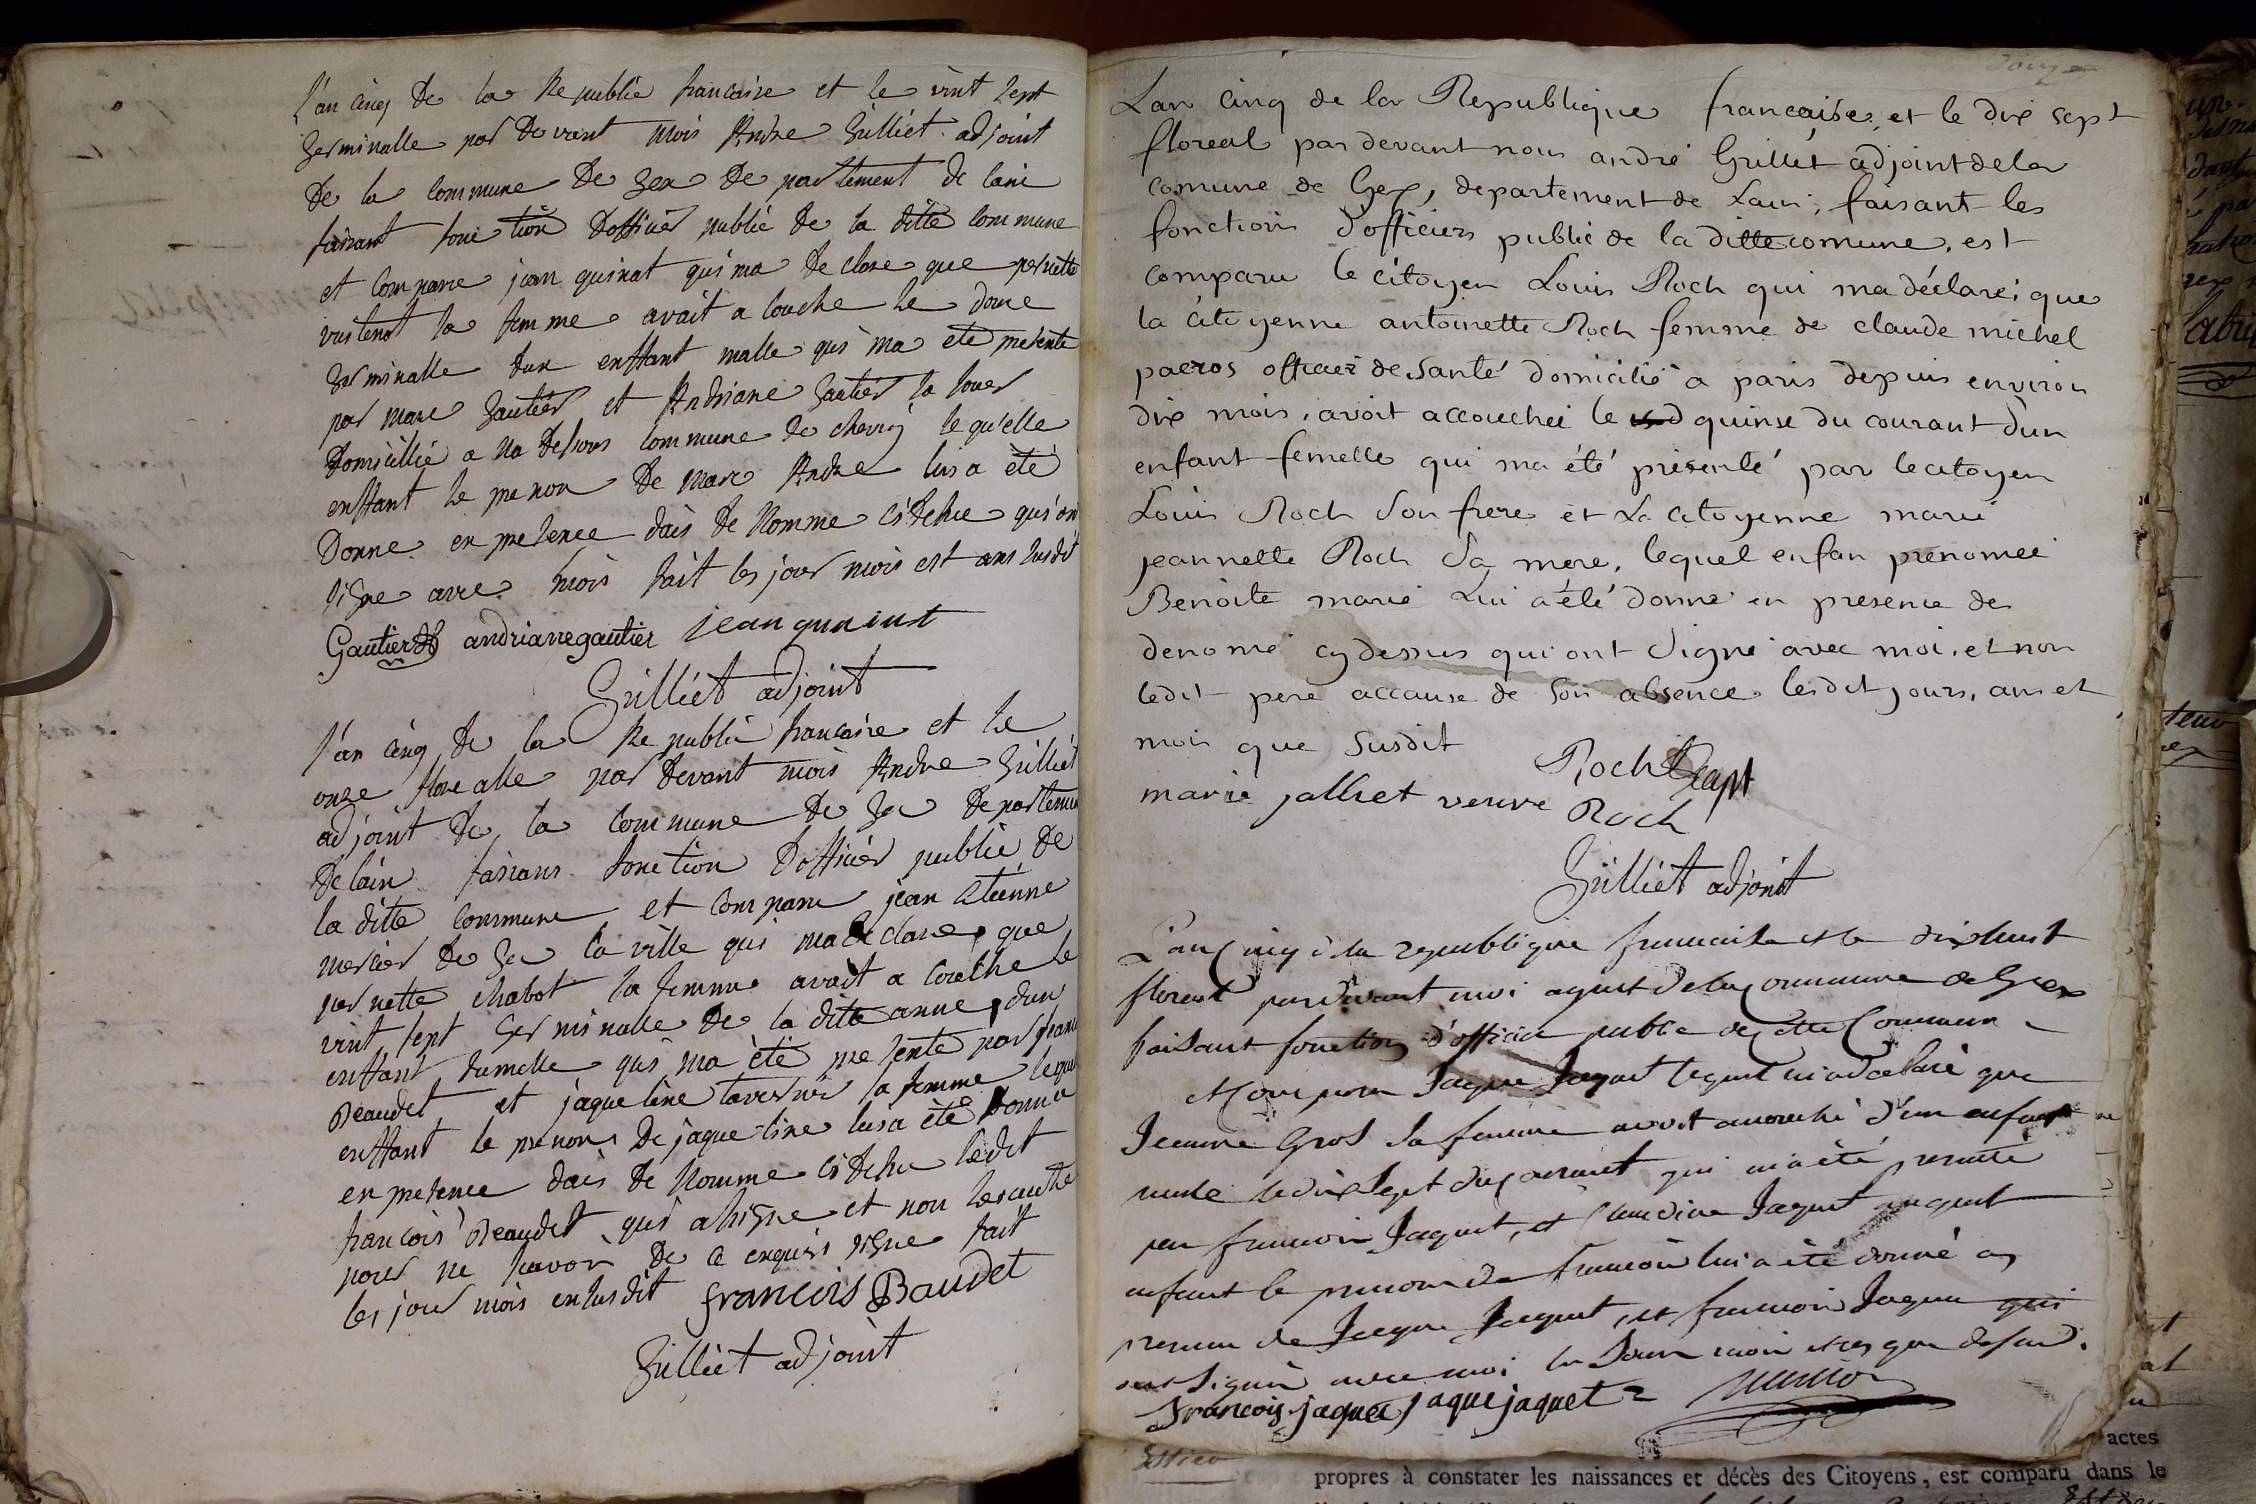 L'an cinq de la Republic francaise et le vint sept
germinalle par devant mois Andre Gilliet adjoint
de la commune de Gex de partement de lain
faisant fonction dofficier public de la ditte commune
et compare jean quinat qui ma de clare que pernette
la femme avait a couche le douze
germinalle dun enffant malle qui ma ete presente
par marc gautier et Andriane gautier sa souer
domicillié a na dessous commune de chevry le qu'elle
enffant le prenon de marc Andre luis a été
Donne en presence dais de nomme ci desue qui on
signe avec mois fait les jour mois est ans susdit
Gautier andrianegautier jean quninat
Gilliet adjoint
l'an cinq de la Republic francaise et le
onze floralle par devant mois Andre Gilliet
adjoint de la commune de Gex departement
de lain faisans fonction dofficier public de
la ditte commune et compare jean etienne
mercier de Gex la ville qui ma de clare que
pernette chabot sa femme avait a couche le
vint sept germinalle de la ditte anne dun
enffant qui ma été presente par
Beaudet et jaqueline sa femme lequel
enffant le prenon de jaqueline luis a été Donne
en presence dais de nomme ci desue ledit
francois Beaudet qui a signe et non les autre
pour ne savoir de ce enquis signe fait
les jour mois en susdit francois Baudet
Gilliet adjoint
Lan cinq de la Republique francaise, et le dix sept
floreal par devant nous andré Grillet adjoint de la
comune de Gex, departement de Lain, faisant les
fonctions d'officiers public de la ditte comune, est
comparu le citoyen Louis Roch qui ma déclaré que
la citoyenne antoinette Roch femme de claude michel
pacros officier de santé domicilié a paris depuis environ
dix mois, avoit accouchée le quinse du courant d'un
enfant femelle qui ma été présenté par le citoyen
Louis Roch son frere et La citoyenne marie
jeannette Roch sa mere, lequel enfan prénomée
Benoite marie Lui a été donné en presence de
denomé cy dessus qui ont signé avec moi, et non
ledit pere accause de son absence lesdit jours, an et
mois que susdit Roch Capt
marie jallset veuve Roch
Gilliet adjoint
L'an Cinq de la republique francaise et le dixhuit
floreal par devant moi agent de la Commune de Gex
faisant fonction d'officier public de cette Commune
et Comparu Jaque Jaquet lequel m'a déclaré que
Jeanne Gros sa femme avoit accouché d'un enfant
male le dix sept du courant qui m'a été presenté
par francois Jaquet, et Claudine Jaquet auquel
enfant le prenom de francois lui a été donné en
presence de Jaque Jaquet, et francois Jaquet qui
ont signé avec moi les Jour mois et an que dessus.
Francois jaquet jaque jaquet
actes
propres à constater les naissances et décès des Citoyens, est comparu dans le